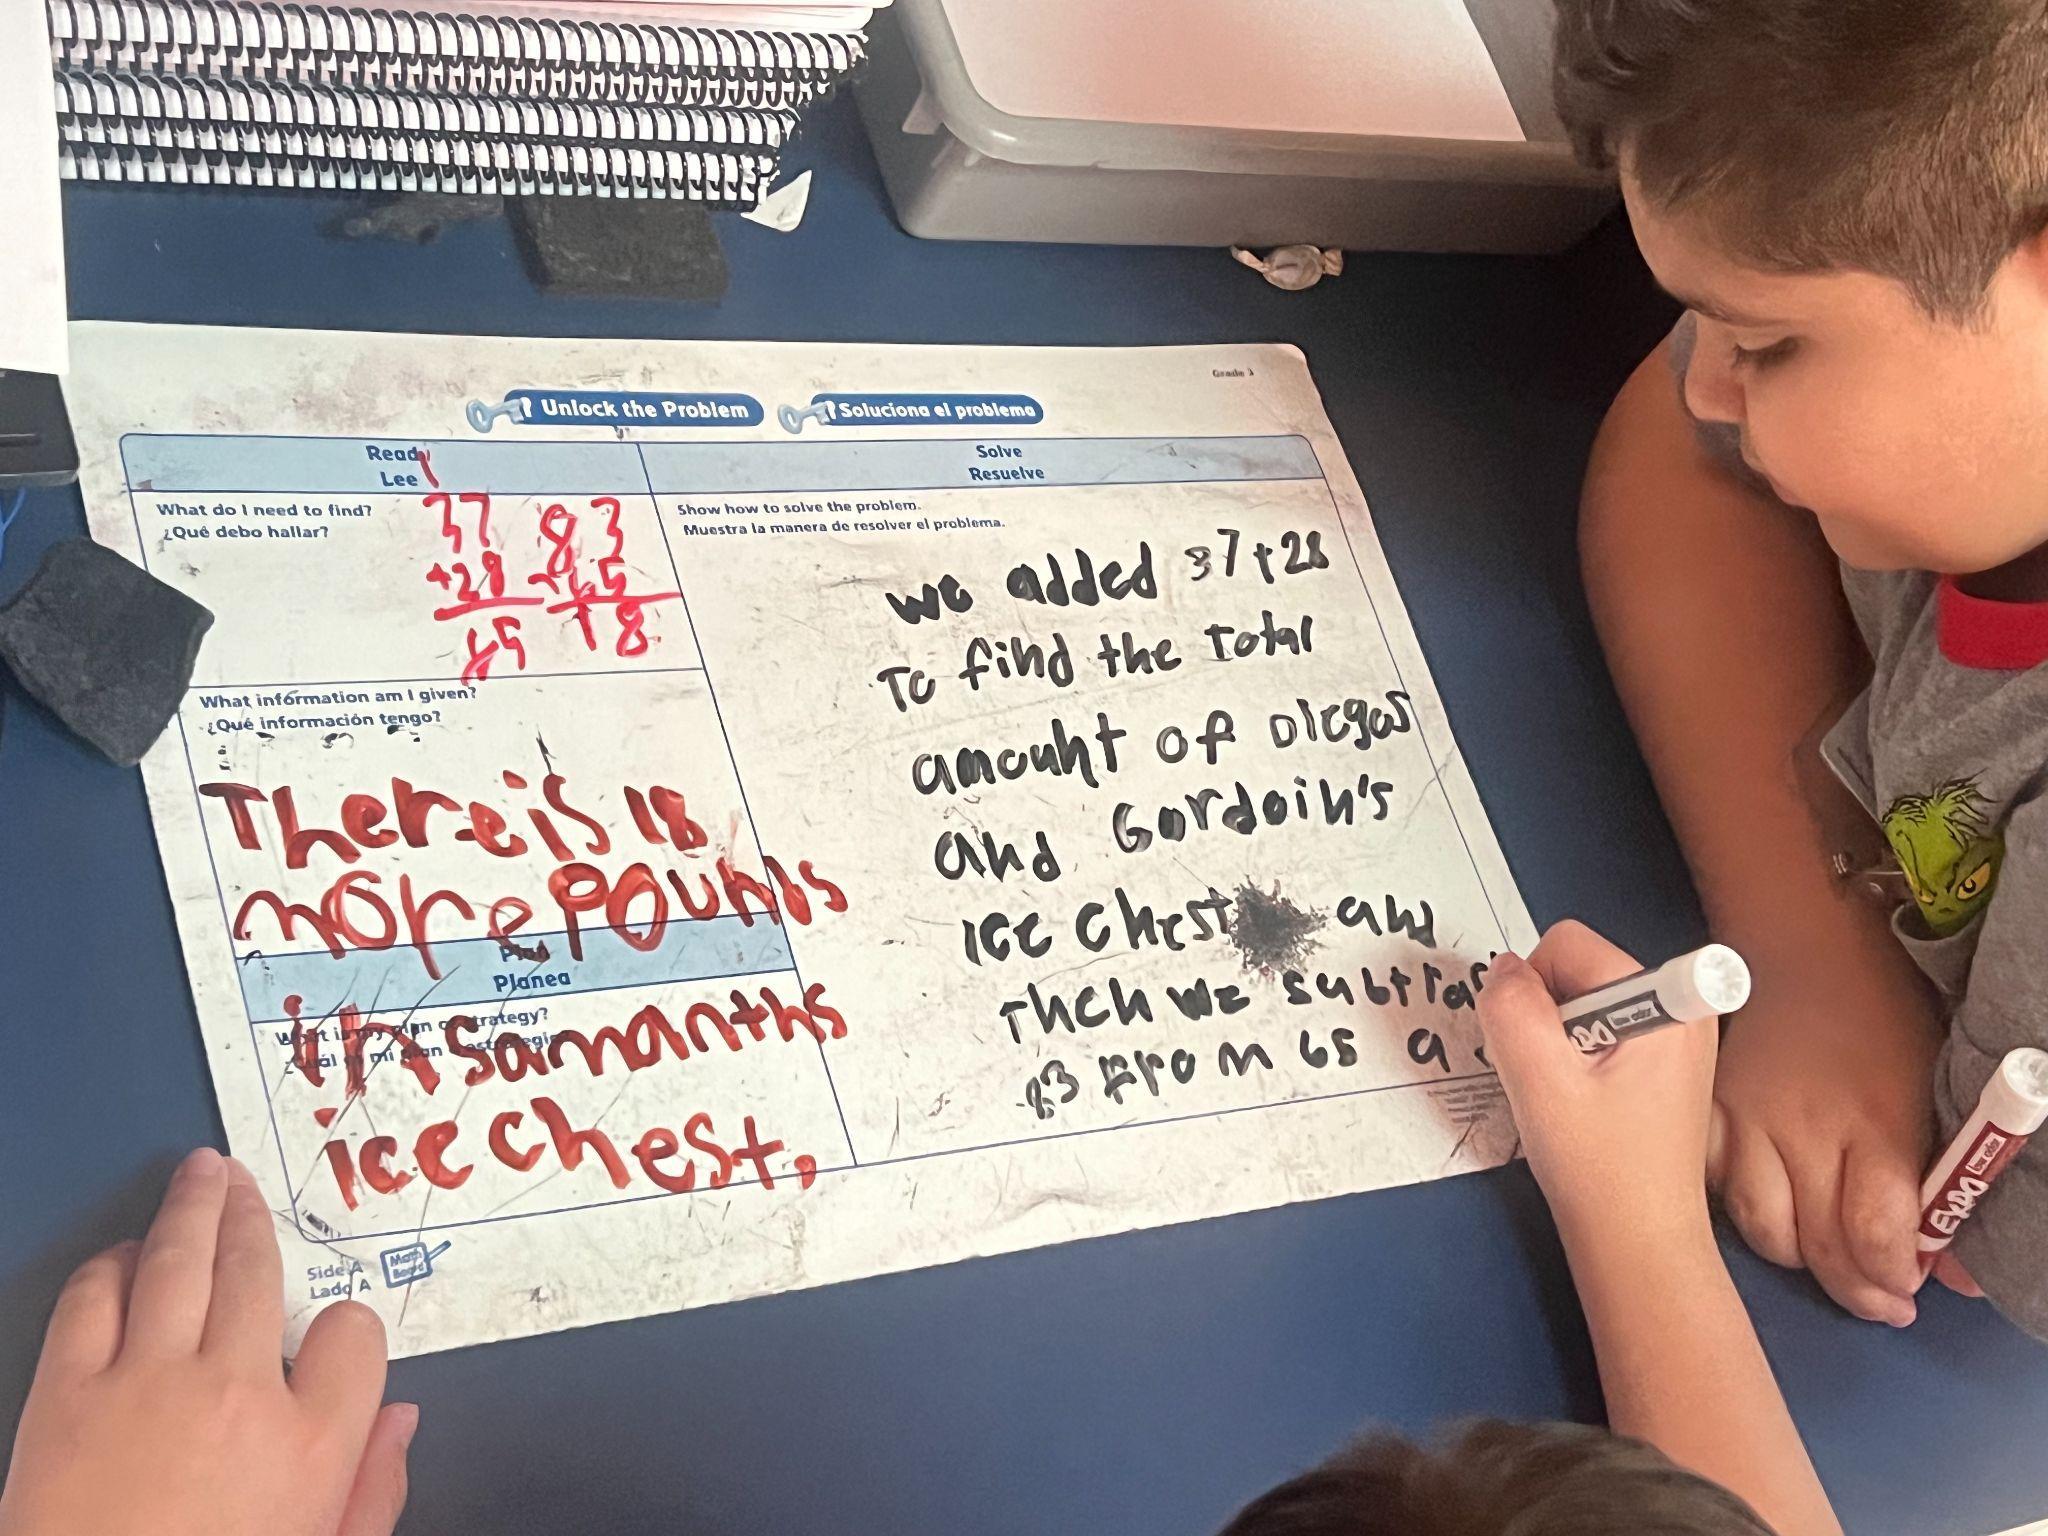 Grade 3
Unlock the Problem
Soluciona el problema
Read
Lee
What do I need to find?
¿Qué debo hallar?
1
37
+28
65
83
-65
18
What information am I given?
¿Qué información tengo?
There is 18
more pounds
in Samanths
ice chest.
Plan
Planea
What is my plan or strategy?
¿Cuál es mi plan o estrategia?
Side A
Lado A
Math
Board
Solve
Resuelve
Show how to solve the problem.
Muestra la manera de resolver el problema.
we added 37+28
To find the total
amount of Diegos
and Gordoin's
ice chest and
then we subtract
83 From 65 a
EXPO
low odor
EXPO
low odor